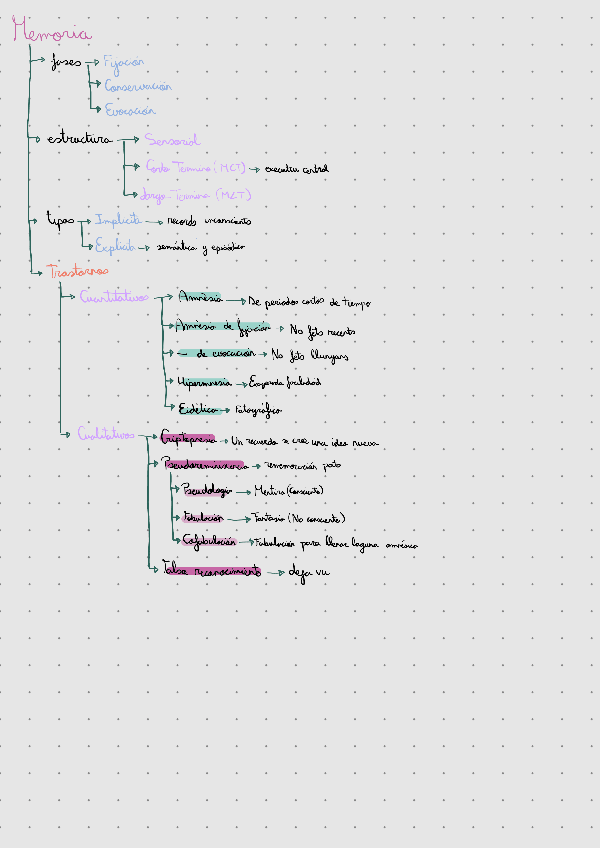 Memoria
fases → Fijación
Conservación
Evocación
estructura → Sensorial
Corto Termino (MCT) → executiu control
Largo-Termino (MLT)
tipos → Implicita → records inconscients
Explicita → semántica y episódica
Trastornos
Cuantitativos → Amnèsia → De periodos cortos de tiempo
Amnèsia de fijación → No fets recents
— de evocación → No fets llunyans
Hipermnesia → Exagerada facilidad
Eidética → Fotográfica
Cualitativos → Criptomnesia → Un recuerdo se cree una idea nueva
Pseudoreminiscencia → rememoración pato
Pseudologia → Mentira (Consciente)
Fabulación → Fantasia (No consciente)
Cofabulación → Fabulación para llenar laguna amnésica
Falso reconocimiento → deja vu